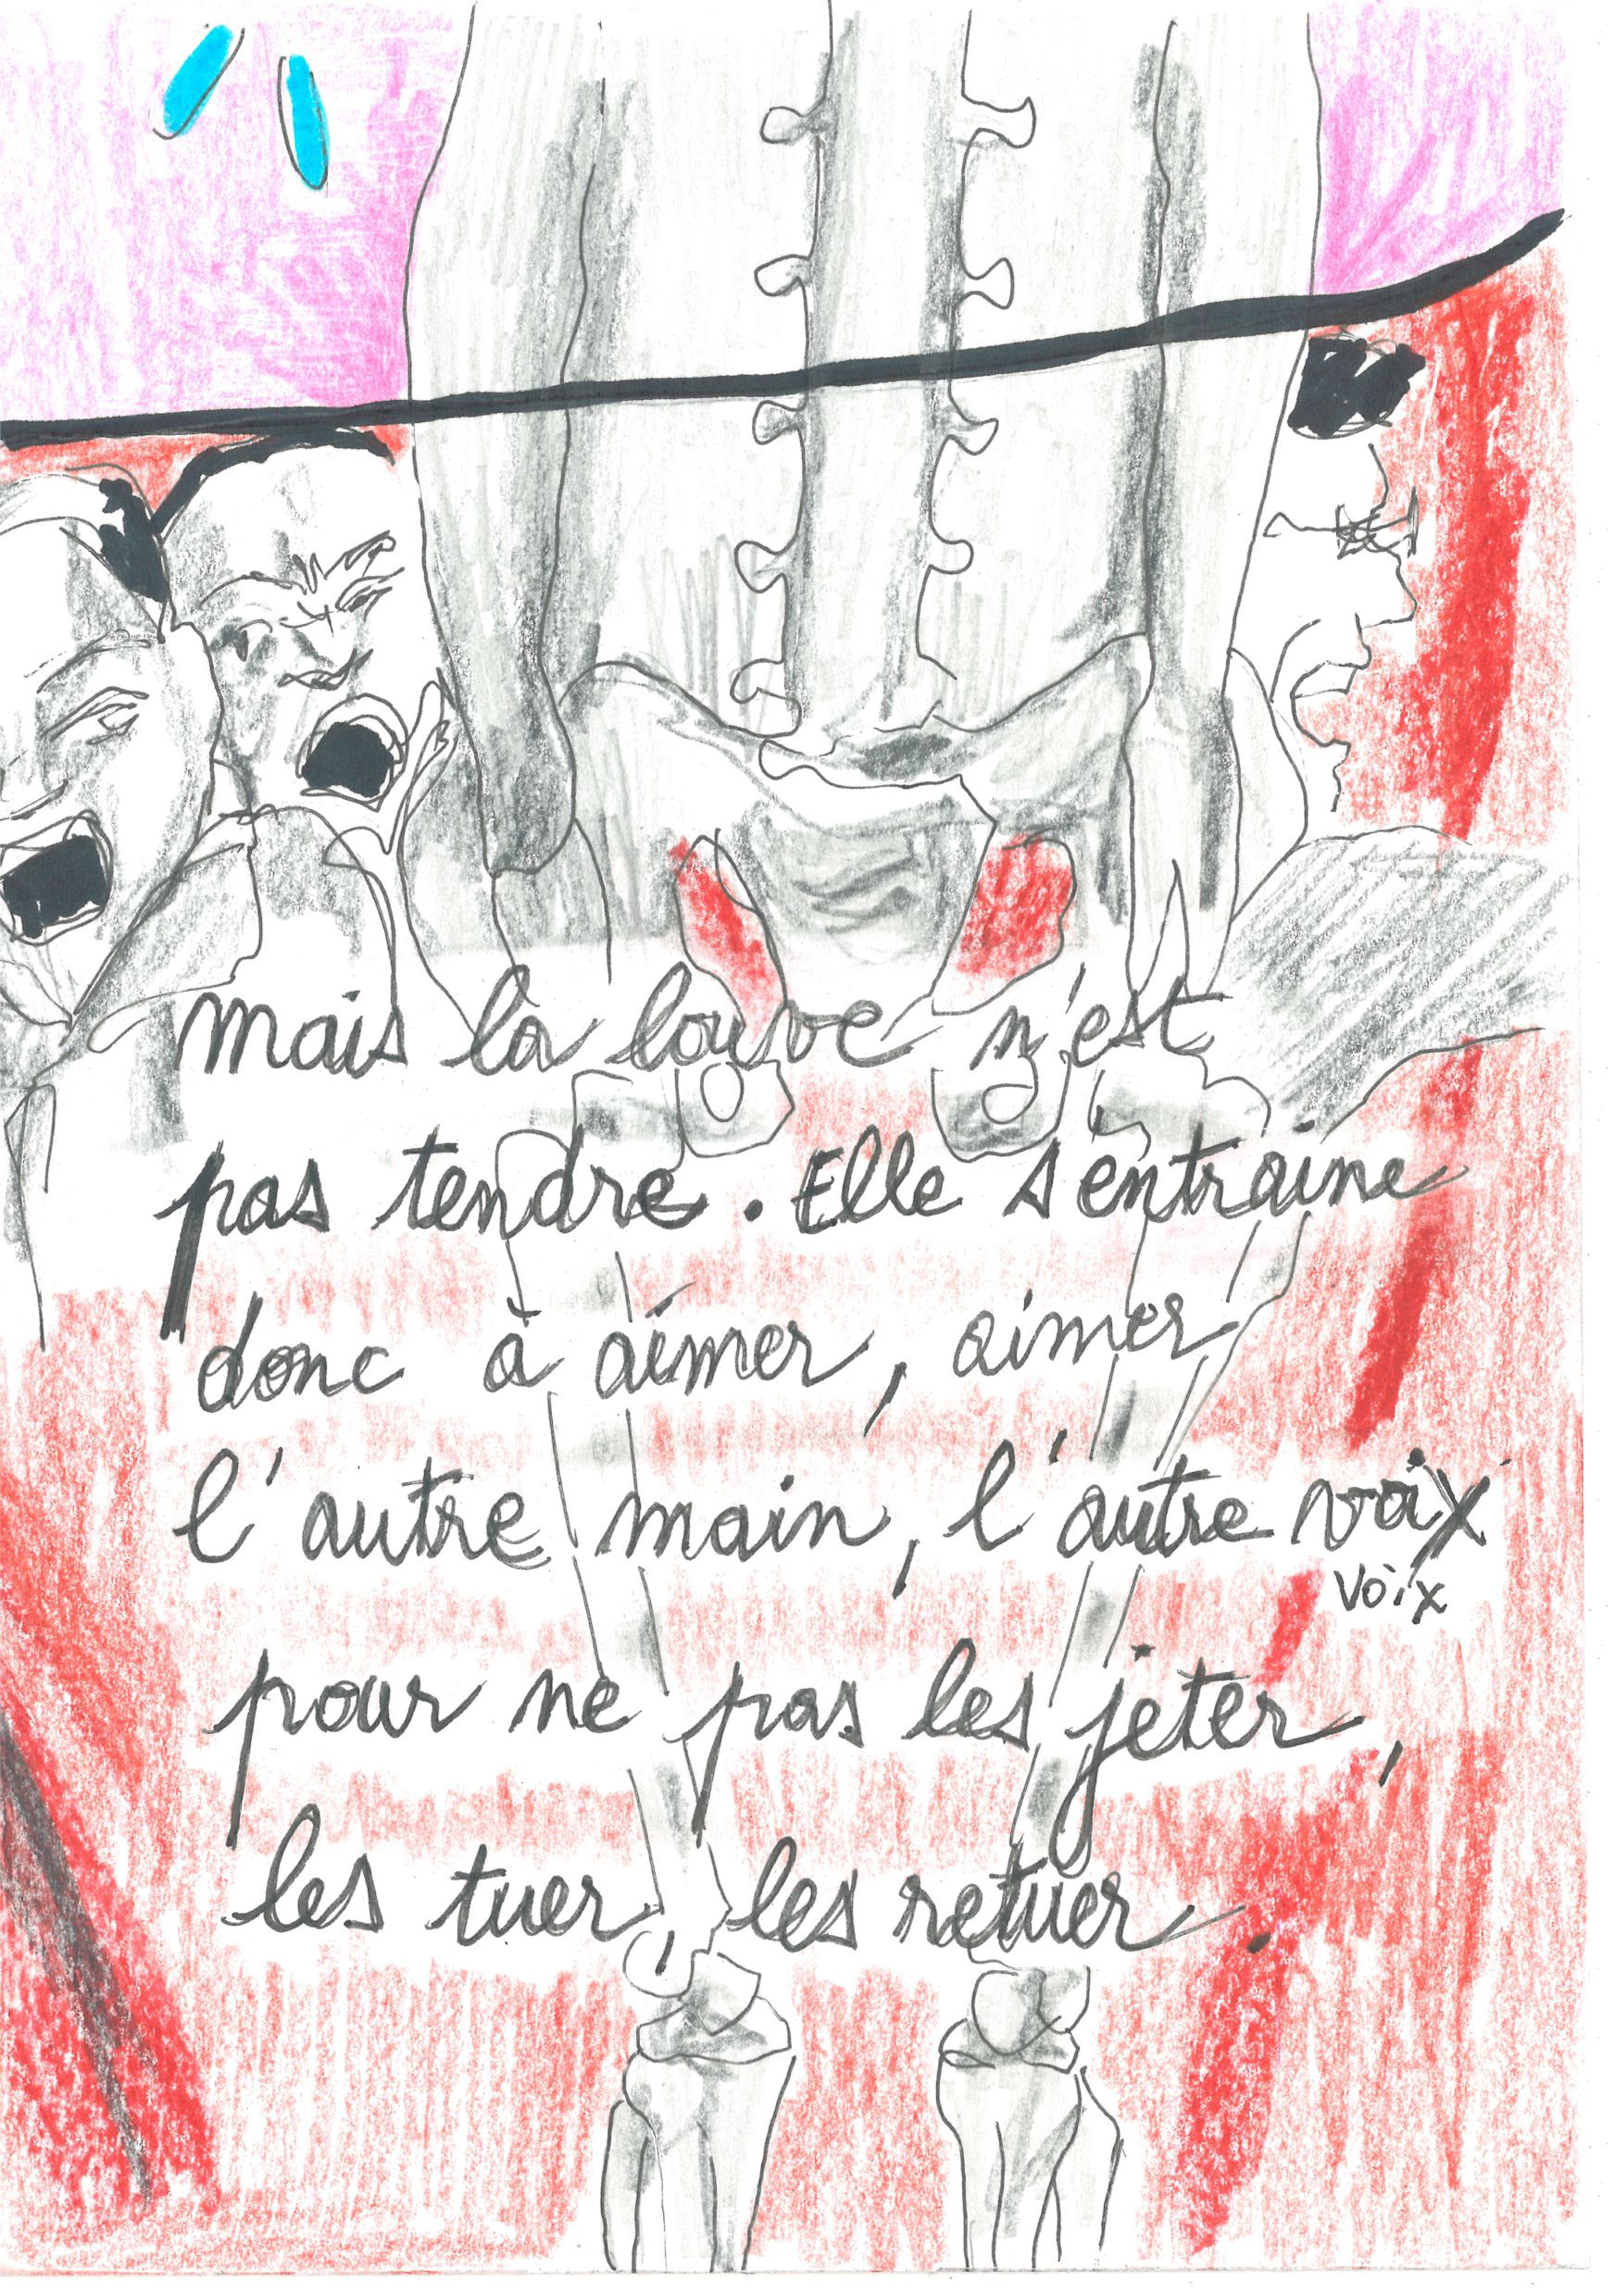 mais la louve n'est
pas tendre. Elle s'entraine
donc à aimer, aimer
l'autre main, l'autre voix
voix
pour ne pas les jeter,
les tuer, les retuer.